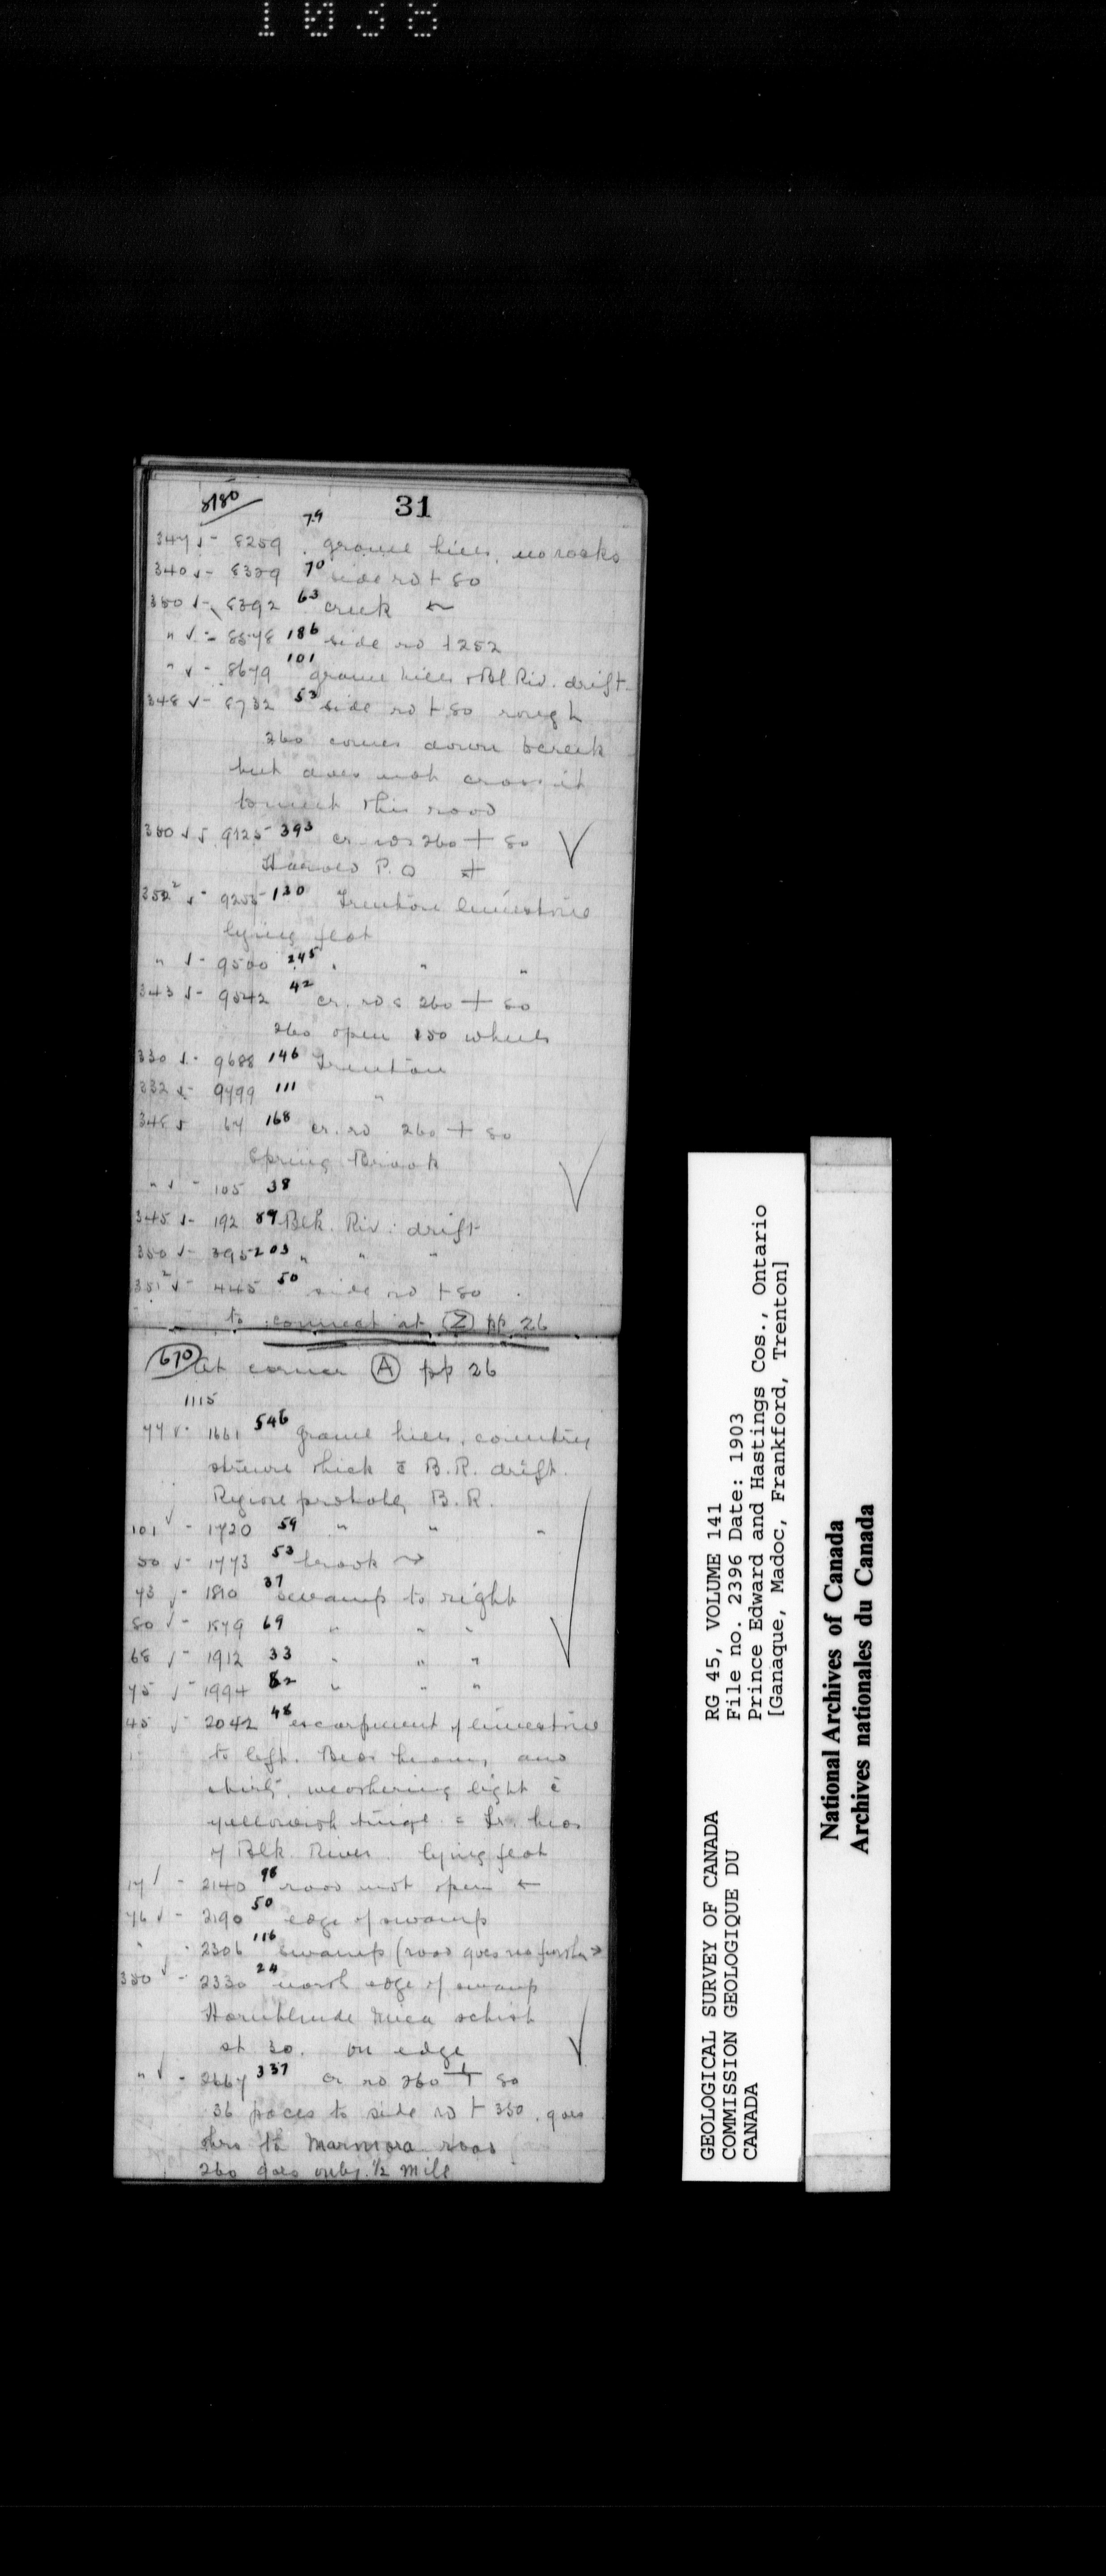 1038
31
8180
347 √- 8259 79 gravel hills, no rocks
340 √- 8329 70 side rd + 80
350 √- 8392 63 creek ←
" √- 8578 186 side rd + 252
" √- 8679 101 gravel hills + Bl. Riv. drift
348 √- 8732 53 side rd + 80 rough
260 comes down to creek
but does not cross it
to meet this road
350 √√ 9125 393 cr. rds 260 + 80
Harold P.O. +
352² √- 9255 130 Trenton limestone
lying flat
" √- 9500 245 " " "
343 √- 9542 42 cr. rds 260 + 80
260 open 150 wheels
330 √- 9688 146 Trenton
332 √- 9799 111 "
348 √ 67 168 cr. rd 260 + 80
Spring Brook
" √- 105 38
345 √- 192 87 Blk. Riv. drift
350 √- 395 203 " " "
351² √- 445 50 side rd + 80
to connect at (Z) pp 26
670 At corner (A) pp 26
1115
77 √- 1661 546 gravel hills, country
strewn thick c̄ B.R. drift.
Region probably B.R.
101 √- 1720 59 " " "
50 √- 1773 53 brook →
73 √- 1810 37 swamp to right
80 √- 1879 69 " " "
68 √- 1912 33 " " "
75 √- 1994 82 " " "
45 √- 2042 48 escarpment of limestone
to left. Beds heavy, and
weathering light c̄
yellowish tinge =
of Blk River. lying flat
17 √- 2140 98 road not open ←
76 √- 2190 50 edge of swamp
" - 2306 116 swamp (road goes no further →
350 √- 2330 24 north edge of swamp
Hornblende mica schist
at 30. on edge
" √- 2667 337 cr rd 260 + 80
36 paces to side rd + 350, goes
thro to Marmora road
260 goes only ½ mile
GEOLOGICAL SURVEY OF CANADA
COMMISSION GEOLOGIQUE DU
CANADA
RG 45, VOLUME 141
File no. 2396 Date: 1903
Prince Edward and Hastings Cos., Ontario
[Ganaque, Madoc, Frankford, Trenton]
National Archives of Canada
Archives nationales du Canada